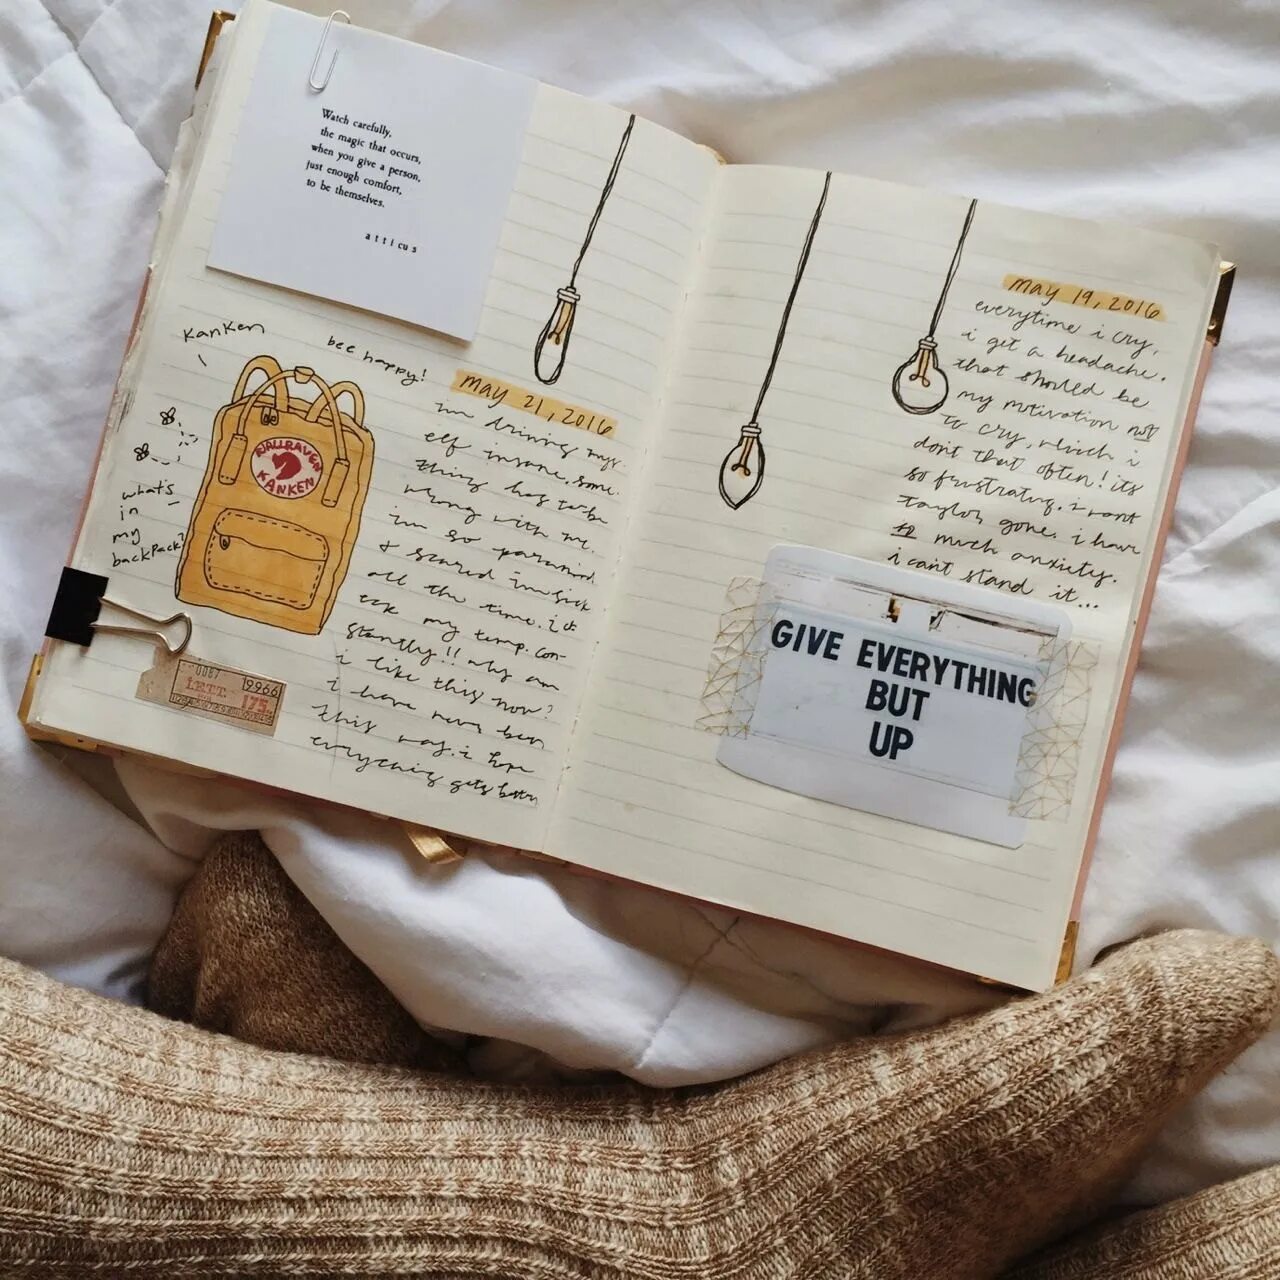 Watch carefully,
the magic that occurs,
when you give a person,
just enough comfort,
to be themselves.
atticus
KanKen
bee happy!
FJALLRAVEN
KANKEN
what's
in
my
backpack?
0087
9966
LETT.
175.
may 21, 2016
im driving mys-
elf insane. some-
thing has to be
wrong with me.
im so paranoid
& scared im sick
all the time. i ch
eck my temp. con-
stantly!! why am
i like this now?
i have never been
this way. i hope
everything gets better
may 19, 2016
everytime i cry,
i get a headache.
that should be
my motivation not
to cry, which i
dont that often! its
so frustrating. i want
taylor gone. i have
so much anxiety.
i cant stand it...
GIVE EVERYTHING
BUT
UP